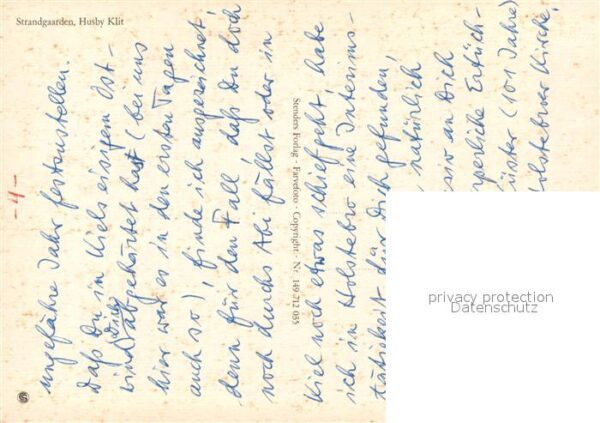 Strandgaarden, Husby Klit
- 4 -
ungefähre Jahr festzustellen.
Daß Du in Kiels eisigem Ost-
wind Dich abgehärtet hast (bei uns
hier war es in den ersten Tagen
auch so), finde ich ausgezeichnet,
denn für den Fall, daß Du doch
noch durchs Abi fällst oder in
Stenders Forlag - Farvefoto - Copyright - Nr. 149 712 035
Kiel noch etwas schiefgeht, habe
ich in Holstebro eine Interims-
tätigkeit für Dich gefunden,
natürlich
wir an Dich
perliche Ertüch-
üster (101 Jahre)
Holstebroer Kirche,
privacy protection
Datenschutz